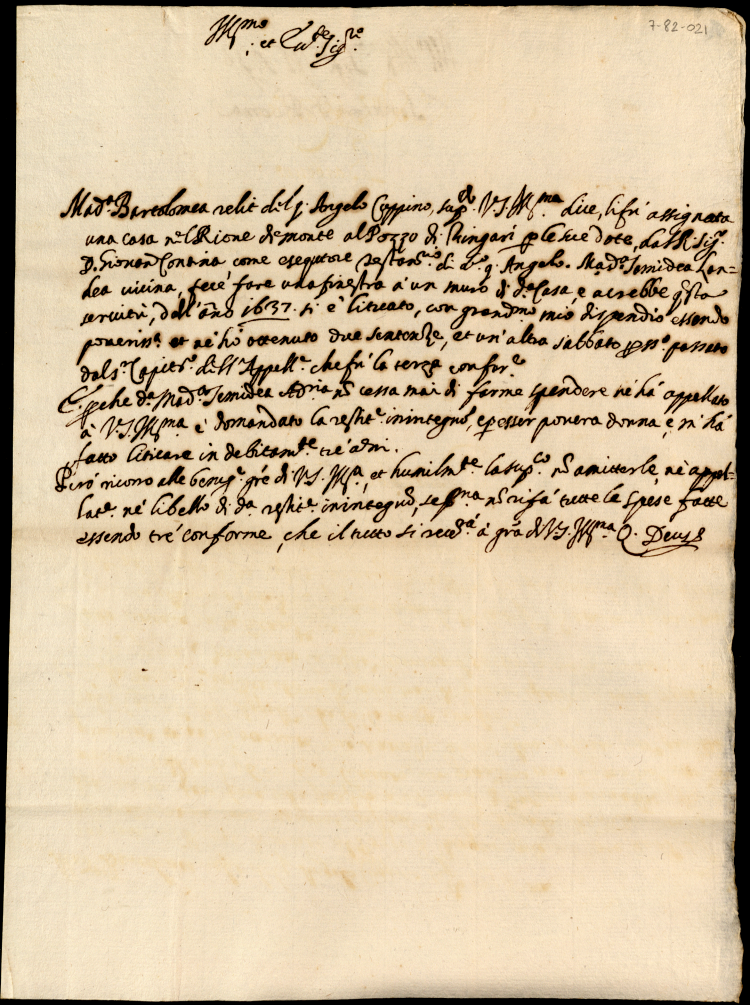 7-82-021
Ill.mo et Ecc.te Sig.re
Mad.a Bartolomea relit del q. Angelo Coppino, sup.do V.S. Ill.ma dice, li fù assignata
una casa nel Rione de monte al Pozzo di Zhingari p le sue dote, dal R. Sig.r
D. Contina come esequtore testam.rio di d.o q. Angelo. Mad.a Semidea
vicina, fece fare una finestra à un muro di d.a Casa, e acrebbe q.sta
servitù, dall'año 1637. si è liticato, con grandmo mio dispendio essendo
poveriss.a et né hò ottenuto due sentenze, et un'altra sabbato p.o ss.o passato
dal s.r Capit.no dell'Appell.e che fù la terza confor.e
E pche d.a Mad.a Semidea Adriana nō cessa mai di farme spendere ne hà appellato
à V.S. Ill.ma è domandato la restit.e in integrō, e p esser povera donna, e m'hà
fatto liticare indebitam.te trè anni.
Però ricorro alle benig.e grē di V.S. Ill.ma et humilm.te la sup.co nō amitterle, nè appel-
lat.e né libello di d.a restit.e in integrō, se p.ma nō rifà tutte le spese fatte
essendo trè conforme, che il tutto si recev.à à grā di V.S. Ill.ma Q. Deus &